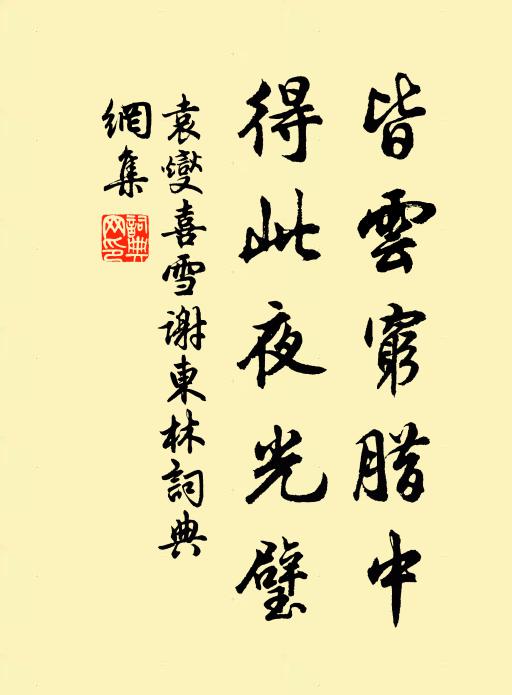 皆雲窮腊中
得此夜光璧
袁燮喜雪謝東林詞典
網集
詞典網印